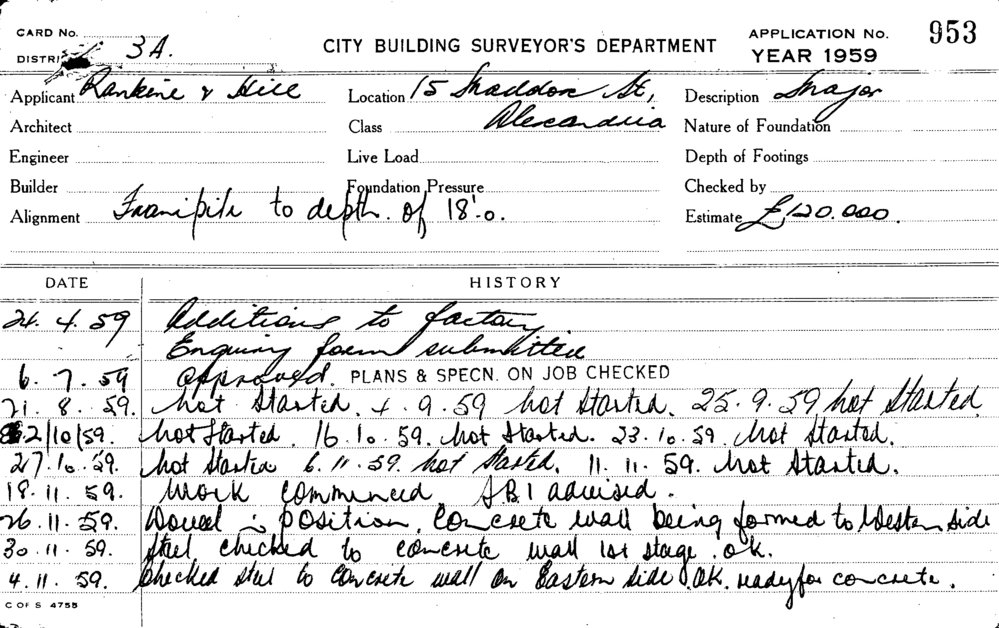 CARD No. 3A.
DISTRICT
CITY BUILDING SURVEYOR'S DEPARTMENT
APPLICATION No. 953
YEAR 1959
Applicant Rankine & Hill
Location 15 Maddox St, Alexandria
Description Major
Architect
Class
Nature of Foundation
Engineer
Live Load
Depth of Footings
Builder
Foundation Pressure
Checked by
Alignment Franipile to depth. of 18'.0.
Estimate £120.000.
DATE HISTORY
24. 4. 59 Additions to factory
Enquiry form submitted
6. 7. 59 approved. PLANS & SPECN. ON JOB CHECKED
21. 8. 59. not Started. 4. 9. 59 not Started. 25. 9. 59 not Started
2/10/59. not Started. 16. 10. 59. not Started. 23. 10. 59. not Started.
27. 10. 59. not Started 6. 11. 59. not Started. 11. 11. 59. not Started.
18. 11. 59. Work commenced. advised.
26. 11. 59. Dowel in position. Concrete wall being formed to Western side
30. 11. 59. Steel checked to concrete wall 1st stage. ok.
4. 11. 59. Checked steel to concrete wall on Eastern side. OK. ready for concrete.
C OF S 475B